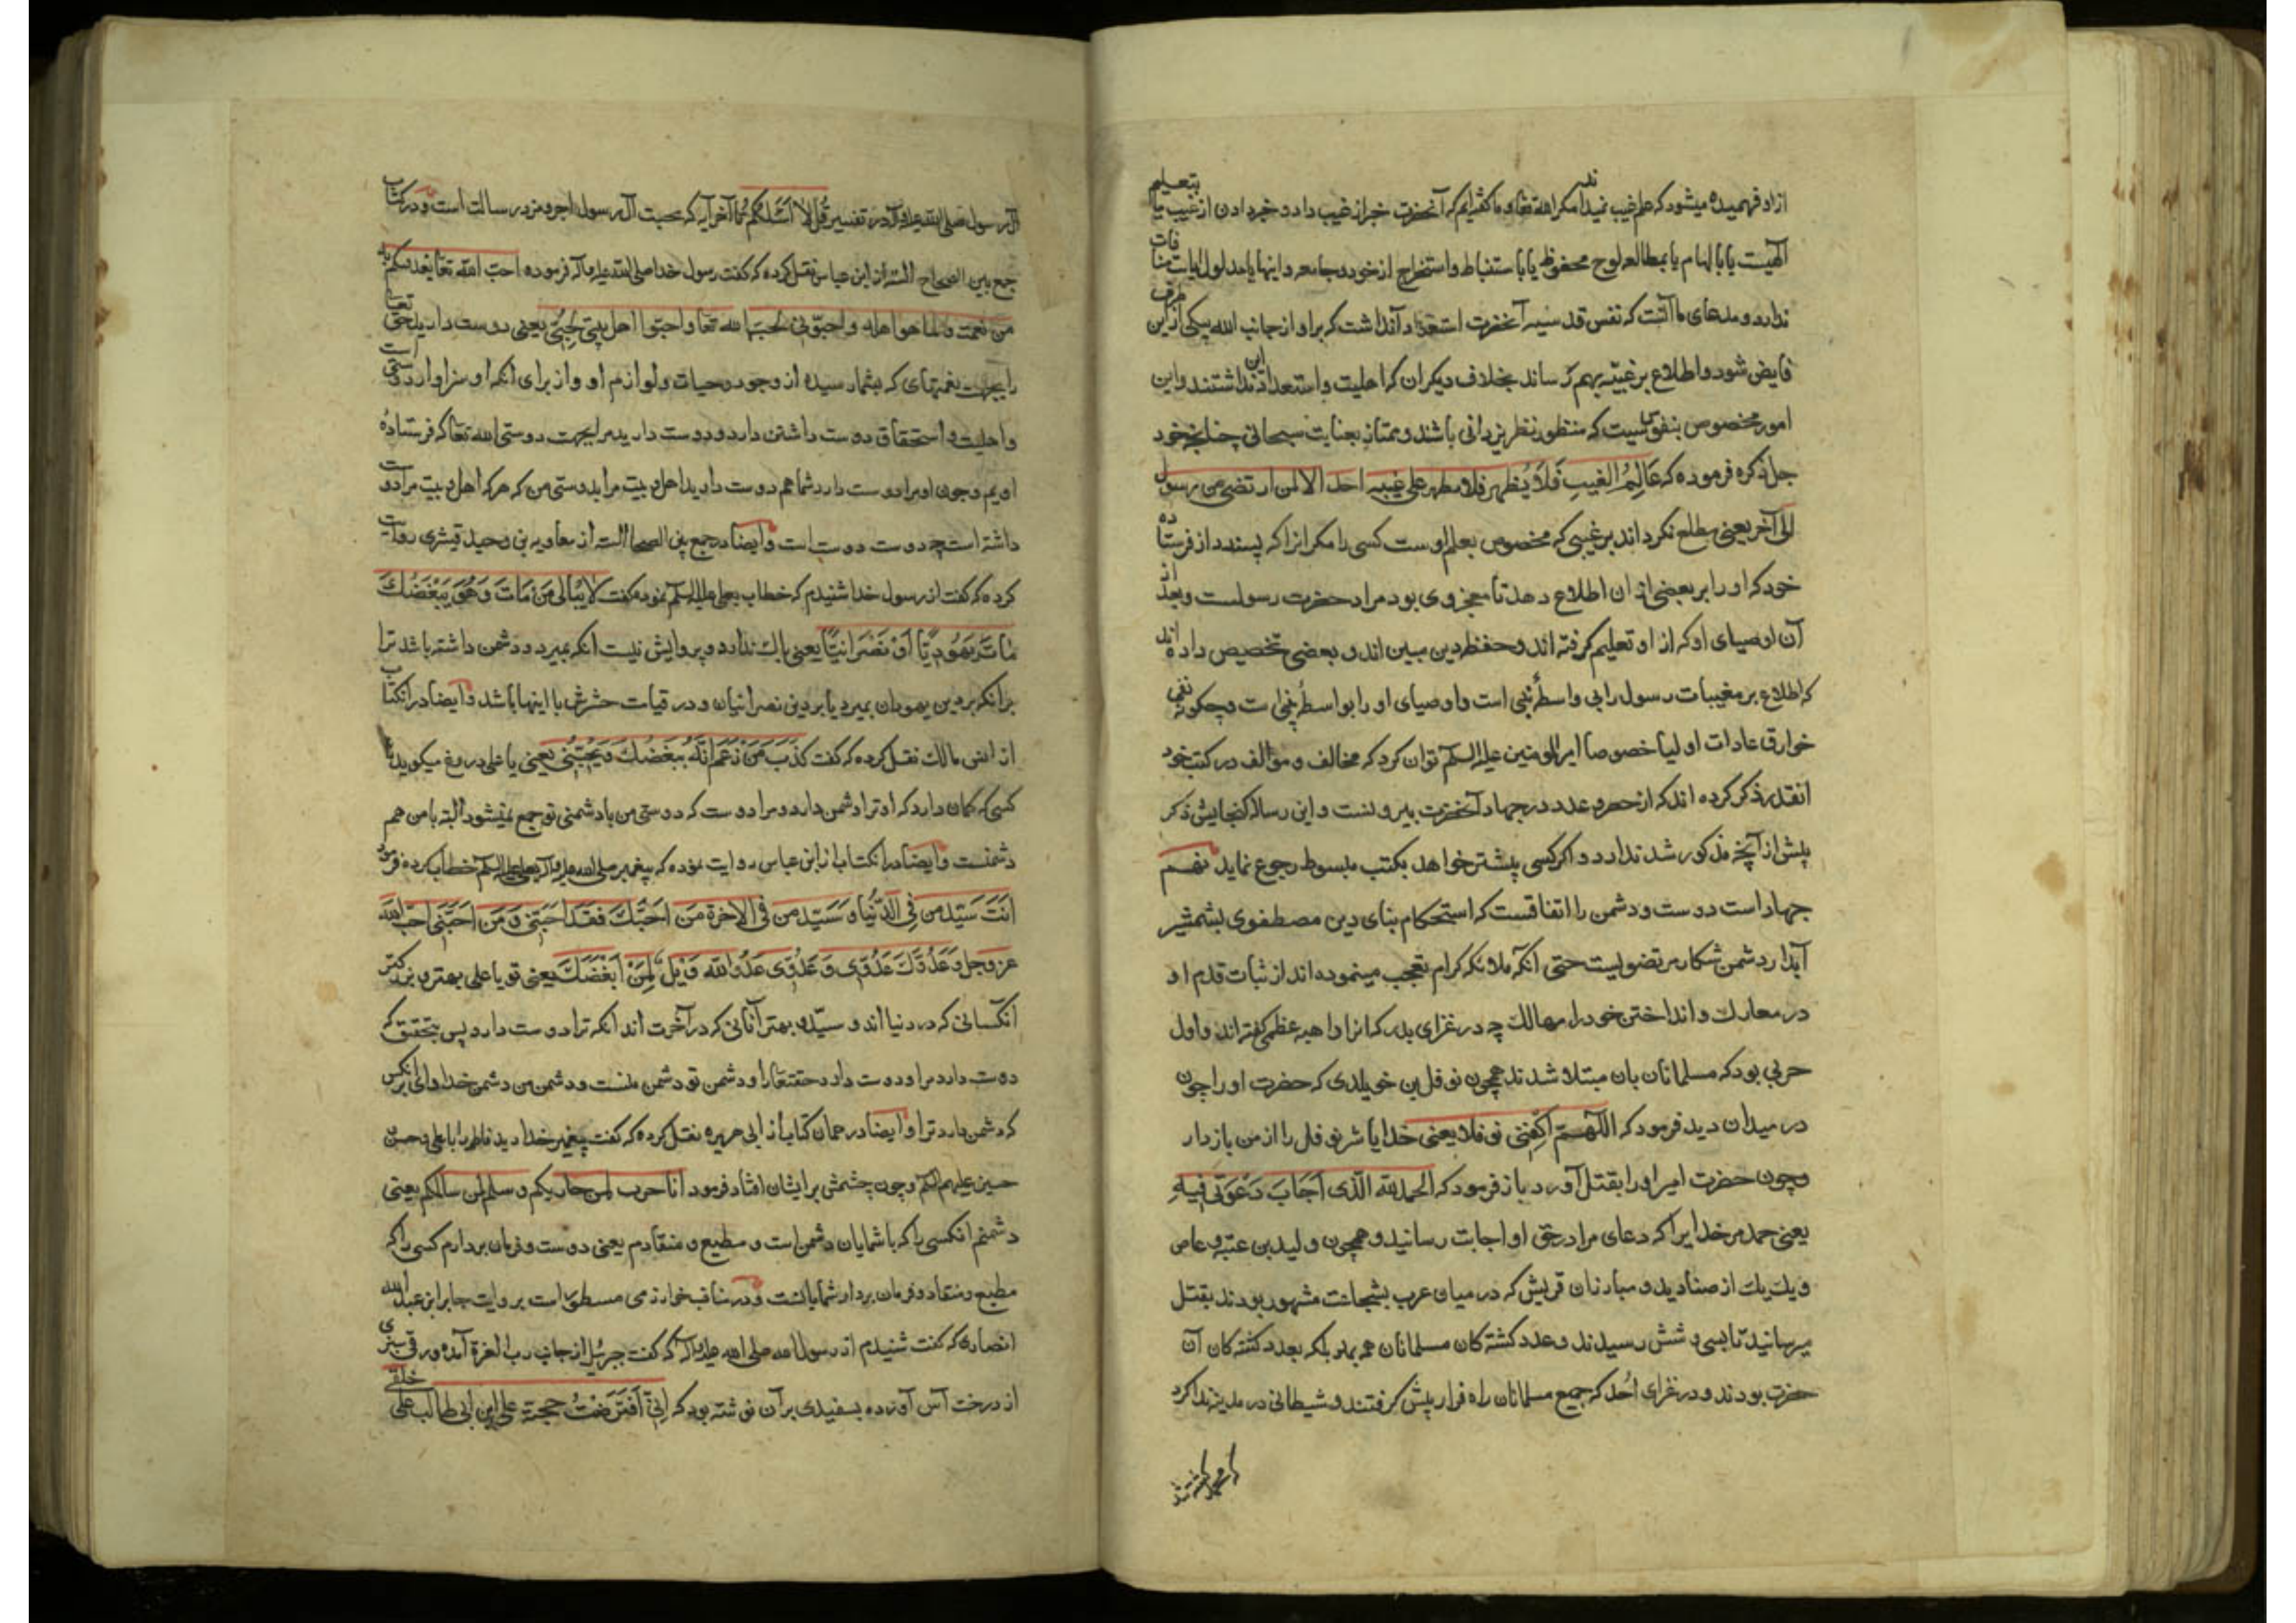 ازاو فهمیده میشود که علم غیب نمیداند مکر الله تعا و ما کفته‌ایم که آنحضرت خبر از غیب داد و خبر دادن از غیب یا بتعلیم
الهیت یا بالهام یا بمطالعه لوح محفوظ یا باستنباط و استخراج از خود و جامعه و اینها با مدلول ایات منافات
ندارد و مدعای ما آنست که نفس قدسیه آنحضرت استعداد آنداشت که بر او از جانب الله یکی ازین طرق
فایض شود و اطلاع بر غیبیه بهم رساند بخلاف دیکران که اهلیت و استعداد این نداشتند و این
امور مخصوص بنفوسیست که منظور نظر یزدانی باشند و ممتاز بعنایت سبحانی چنانچه خود
جل ذکره فرموده که عَالِمُ الغیبِ فَلَا یُظهر علی غیبه احد الا لمن ارتضی من رسول
الی آخر یعنی مطلع نکرداند بر غیبی که مخصوص بعلم اوست کسی را مکر انرا که پسندد از فرستاده
خود که او را بر بعضی از ان اطلاع دهد تا معجزه وی بود مراد حضرت رسولست و بعد از
آن اوصیای او که از او تعلیم کرفته اند و حفظه دین مبین اند و بعضی تخصیص داده اند
که اطلاع بر مغیبات رسول را بی واسطهٔ نبی است و اوصیای او را بواسطهٔ نبی است و چکونه نفی
خوارق عادات اولیا خصوصا امیرالمومنین علیه السلم توان کرد که مخالف و موالف در کتب خود
انقدر ذکر کرده اند که از حصر و عدد در جهاد آنحضرت بیرونست و این رساله کنجایش ذکر
پیش از آنچه مذکور شد ندارد و اکر کسی پیشتر خواهد بکتب مبسوط رجوع نماید نهم
جهاد است دوست و دشمن را اتفاقست که استحکام بنای دین مصطفوی بشمشیر
آبدار دشمن شکار مرتضویست حتی آنکه ملائکه کرام تعجب مینموده اند از ثبات قدم او
در معارک و انداختن خود را در مهالک چه در غزای بدر که انرا داهیه عظمی کفته اند و اول
حربی بود که مسلمانان بان مبتلا شدند همچون نوفل بن خویلدی که حضرت او را چون
در میدان دید فرمود که اللّهم اکفِنی نوفلا یعنی خدایا شر نوفل را از من بازدار
و چون حضرت امیر او را بقتل آورد باز فرمود که الحمد لله الّذی اَجَابَ دَعْوَتی فیهِ
یعنی حمد مر خدایرا که دعای مرا در حق او اجابت رسانید و همچون ولید بن عتبه و عاص
و یک یک از صنادید و مبارزان قریش که در میان عرب بشجاعت مشهور بودند بقتل
میرسانید تا بسی و شش رسیدند و عدد کشته کان مسلمانان هم بعدد کشته کان آن
حضرت بودند و در غزای اُحُد که جمیع مسلمانان راه فرار پیش کرفتند و شیطانی در مدینه ندا کرد
آل رسول صلی الله علیه و آله در تفسیر قُل لا اَسْئَلُکُم تا آخر آیه که محبت آل رسول اجر و مزد رسالت است و در کتاب
جمع بین الصحاح السته از ابن عباس نقل کرده که کفت رسول خدا صلی الله علیه و آله فرموده احبّ الله تعا یغدوکم به
من نعمت و لما هو اهله و احبّونی لحبّ الله تعا و احبّوا اهل بیتی لِحُبّی یعنی دوست دارید حق تعا
را بجهت نعمتهای که بشما رسیده از وجود و حیات و لوازم او و از برای انکه او سزاوار دوستی است
و اهلیت و استحقاق دوست داشتن دارد و دوست دارید مرا بجهت دوستی الله تعا که فرستادهٔ
اویم و چون او مرا دوست دارد شما هم دوست دارید اهل بیت مرا بدوستی من که هر که اهل بیت مرا دوست
داشته است چه دوست دوست است و ایضا در جمع بین الصحاح السته از معاویه بن وحید قیشری روایت
کرده که کفت از رسول خدا شنیدم که خطاب بعلی علیه السلم نموده کفت لَا یُبالی مَنْ مَاتَ وَ هُوَ یَبْغَضُکَ
مٰاتَ یَهُودِیًّا اَوْ نَصْرَانِیًّا یعنی باک ندارد و پروایش نیست انکه بمیرد و دشمن داشته باشد ترا
برانکه بر دین یهودان بمیرد یا بر دین نصرانیان و در قیامت حشرش با اینها باشد و ایضا در انکتاب
از انس مالک نقل کرده که کفت کَذَبَ مَنْ زَعَمَ اَنَّهُ یبغضُکَ وَ یُحِبُّنی یعنی یا علی دروغ میکوید
کسی که کمان دارد که او ترا دشمن دارد و مرا دوست که دوستی من با دشمنی تو جمع نمیشود البته با من هم
دشمنست و ایضا در انکتاب از ابن عباس روایت نموده که پیغمبر صلی الله علیه و آله بعلی علیه السلم خطاب کرده فرمود
اَنْتَ سَیّد من فی الدُّنیا و سَیّد من فی الاخرة مَنْ اَحَبَّکَ فَقَدْ اَحَبّنی وَ مَنْ اَحَبَّنی احبّ الله
عز وجل وَ عَدُوّکَ عَدُوّی وَ عَدُوّی عَدُوّ الله وَیْلٌ لِمَنْ اَبْغَضَکَ یعنی تو یا علی بهتر و بزرکتر
انکسانی که در دنیااند و سیّد و بهتر آنانی که در آخرت اند انکه ترا دوست دارد پس بتحقیق که
دوست دارد مرا و دوست دارد حقتعا را و دشمن تو دشمن منست و دشمن من دشمن خدا وای بر انکس
که دشمن دارد ترا و ایضا در همان کتاب از ابی هریره نقل کرده که کفت پیغمبر خدا دید فاطمه را با علی و حسن
حسین علیهم السلم و چون چشمش بر ایشان افتاد فرمود انا حرب لمن حاربکم و سلم لمن سالمکم یعنی
دشمنم انکسی را که با شمایان دشمن است و مطیع و منقادم یعنی دوست و فرمان بردارم کسی را که
مطیع و منقاد و فرمان بردار شمایانست و در مناقب خوارزمی مسطور است بروایت جابر ابن عبدالله
انصاری که کفت شنیدم از رسول الله صلی الله علیه و آله که کفت جبرئیل از جانب رب العزة آمده ورق سبزی
از درخت آس آورده بسفیدی بر آن نوشته بود که اِنّی اَفْتَرَضْتُ محبّة علی ابن ابی طالب علی خلقی